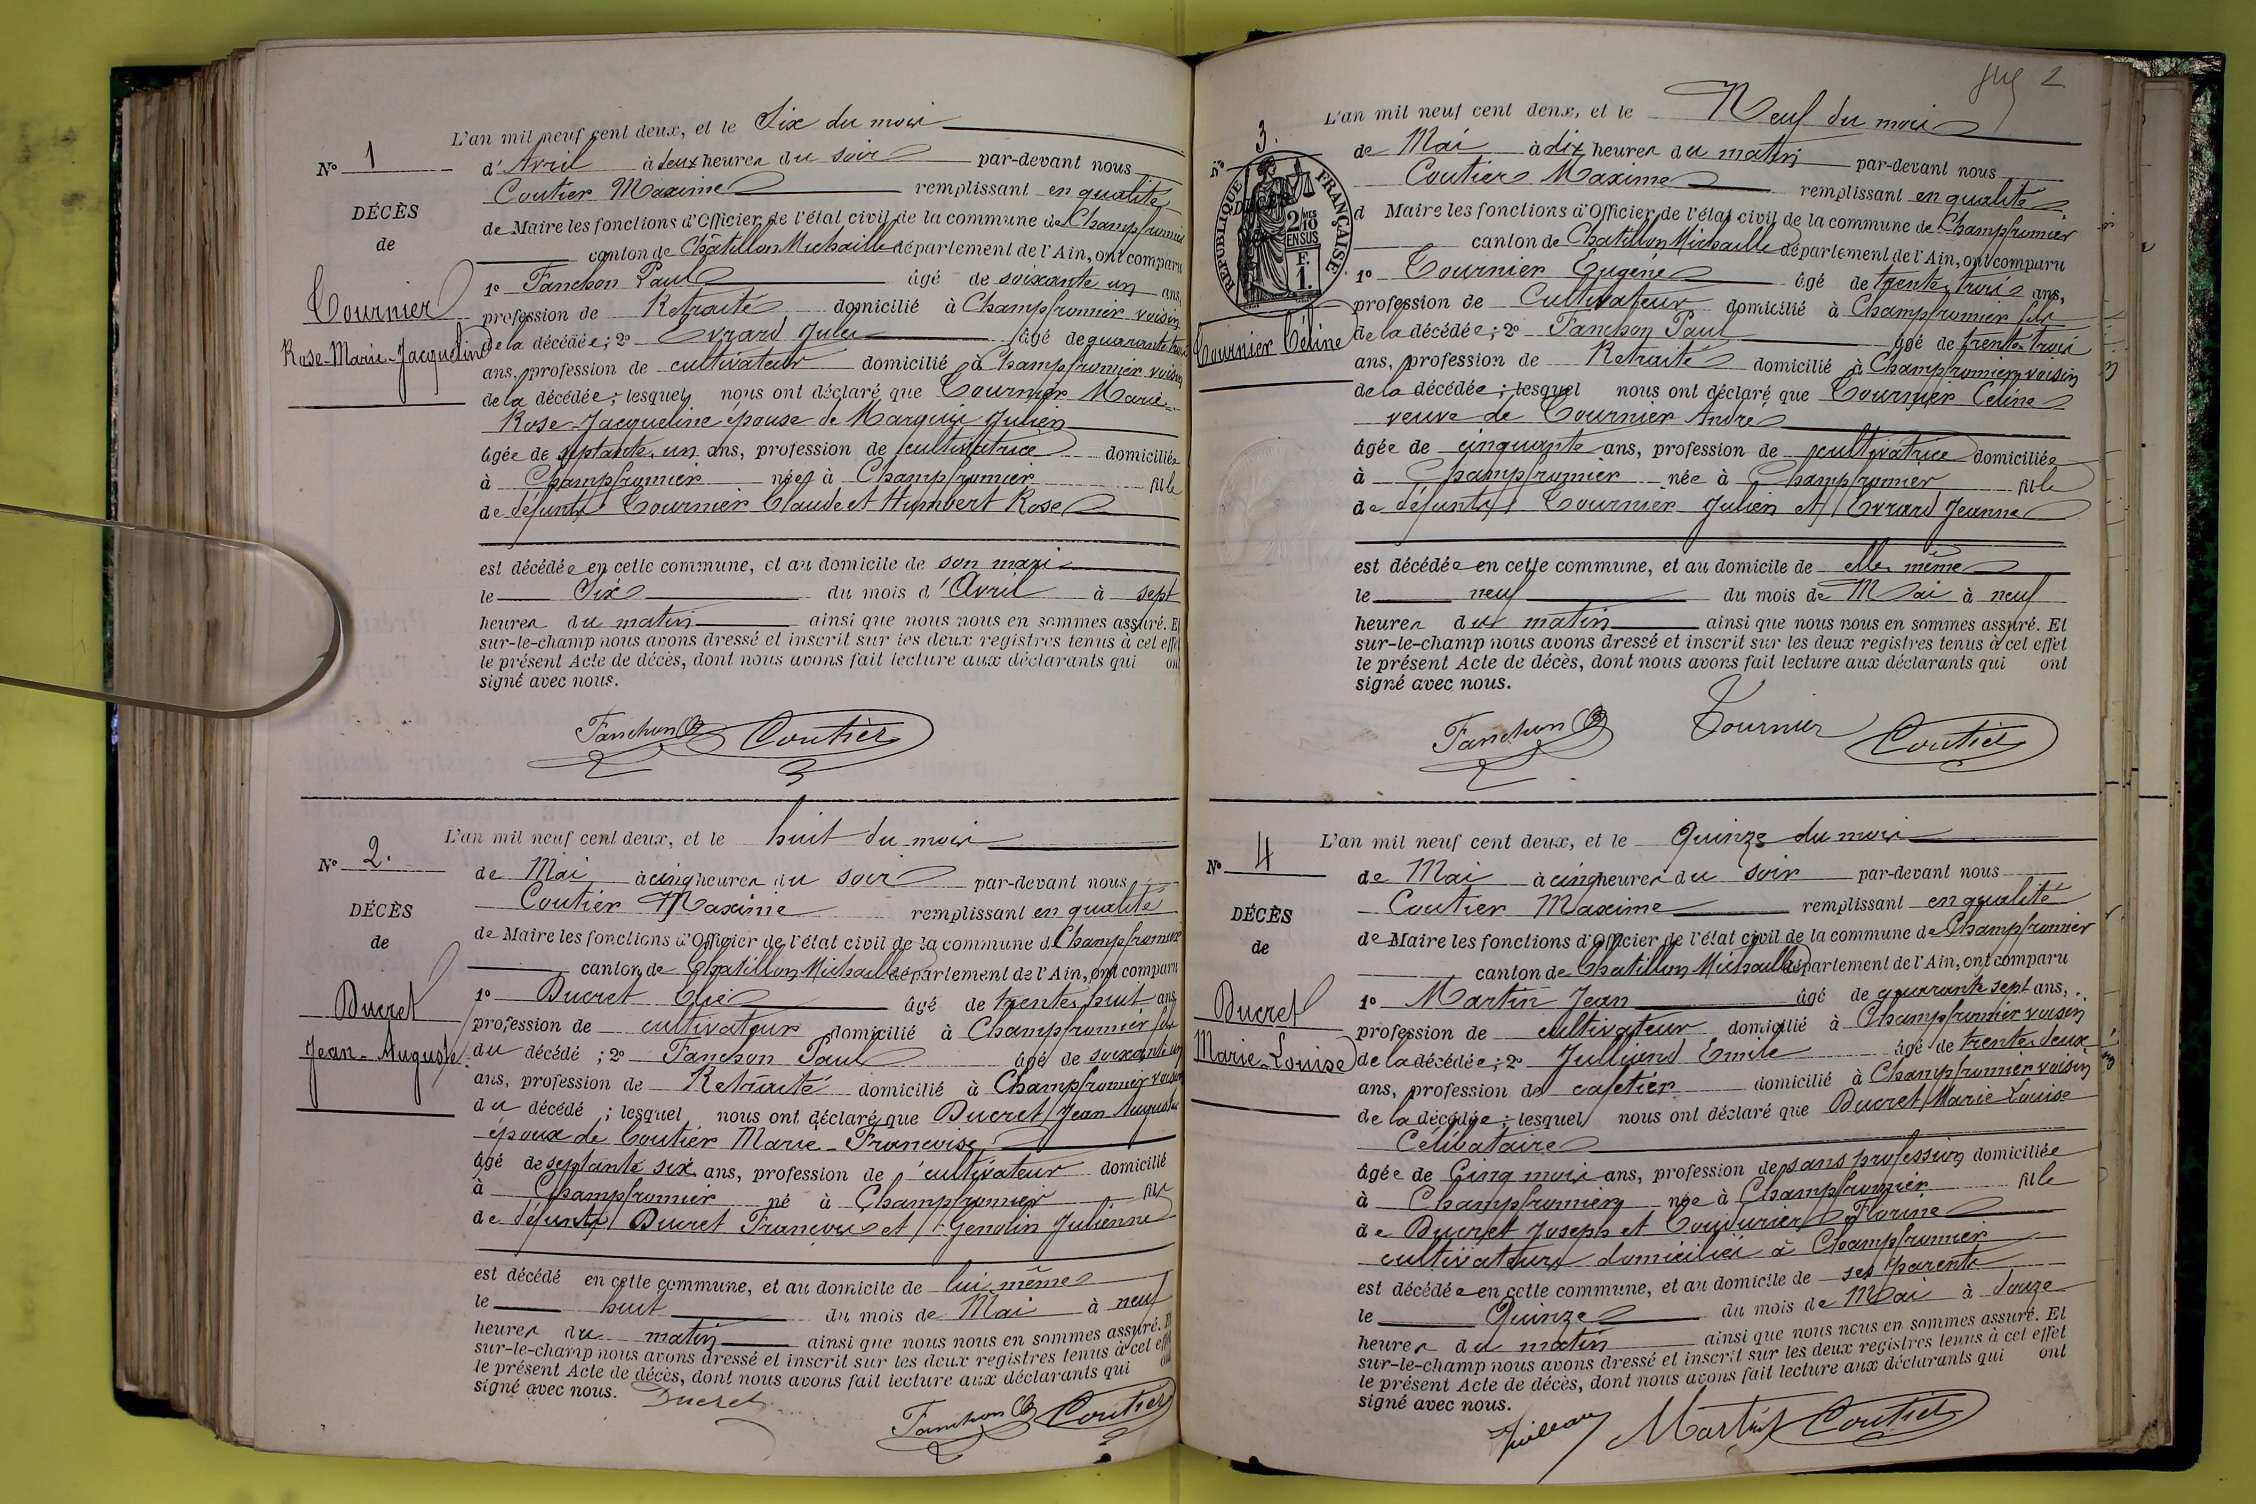 L'an mil neuf cent deux, et le Six du mois
N° 1
d'Avril à deux heures du soir par-devant nous
Coutier Maxime remplissant en qualité
DÉCÈS
de Maire les fonctions d'Officier de l'état civil de la commune de Champfromier
de
canton de Châtillon Michaille département de l'Ain, ont comparu
1° Fanchon Paul âgé de soixante un ans,
Tournier
profession de Retraité domicilié à Champfromier voisin
Rose-Marie-Jacqueline
de la décédée; 2° Evrard Jules âgé de quarante trois
ans, profession de cultivateur domicilié à Champfromier voisin
de la décédée; lesquels nous ont déclaré que Tournier Marie
Rose-Jacqueline épouse de Marquis Julien
âgée de septante un ans, profession de cultivatrice domiciliée
à Champfromier née à Champfromier fille
de défunts Tournier Claude et Humbert Rose
est décédée en cette commune, et au domicile de son mari
le Six du mois d'Avril à sept
heures du matin ainsi que nous nous en sommes assuré. Et
sur-le-champ nous avons dressé et inscrit sur les deux registres tenus à cet effet
le présent Acte de décès, dont nous avons fait lecture aux déclarants qui ont
signé avec nous.
Fanchon Coutier
L'an mil neuf cent deux, et le huit du mois
N° 2.
de Mai à cinq heures du soir par-devant nous
Coutier Maxime remplissant en qualité
DÉCÈS
de Maire les fonctions d'Officier de l'état civil de la commune de Champfromier
de
canton de Chatillon Michaille département de l'Ain, ont comparu
1° Ducret Elie âgé de trente huit ans,
Ducret
profession de cultivateur domicilié à Champfromier fils
Jean-Auguste
du décédé; 2° Fanchon Paul âgé de soixante un
ans, profession de Retraité domicilié à Champfromier voisin
du décédé; lesquels nous ont déclaré que Ducret Jean Auguste
époux de Coutier Marie-Françoise
âgé de septante six ans, profession de cultivateur domicilié
à Champfromier né à Champfromier fils
de défunts Ducret François et Genolin Julienne
est décédé en cette commune, et au domicile de lui même
le huit du mois de Mai à neuf
heures du matin ainsi que nous nous en sommes assuré. Et
sur-le-champ nous avons dressé et inscrit sur les deux registres tenus à cet effet
le présent Acte de décès, dont nous avons fait lecture aux déclarants qui ont
signé avec nous.
Ducret
Fanchon Coutier
2
L'an mil neuf cent deux, et le Neuf du mois
N° 3.
de Mai à dix heures du matin par-devant nous
Coutier Maxime remplissant en qualité
DÉCÈS
RÉPUBLIQUE FRANÇAISE.
2/10 EN SUS
F. 1.
d Maire les fonctions d'Officier de l'état civil de la commune de Champfromier
canton de Chatillon Michaille département de l'Ain, ont comparu
1° Tournier Eugène âgé de trente trois ans,
profession de Cultivateur domicilié à Champfromier fils
Tournier Céline
de la décédée; 2° Fanchon Paul âgé de trente trois
ans, profession de Retraité domicilié à Champfromier voisin
de la décédée; lesquel nous ont déclaré que Tournier Céline
veuve de Tournier André
âgée de cinquante ans, profession de cultivatrice domiciliée
à Champfromier née à Champfromier fille
de défunts Tournier Julien et Evrard Jeanne
est décédée en cette commune, et au domicile de elle même
le neuf du mois de Mai à neuf
heures du matin ainsi que nous nous en sommes assuré. Et
sur-le-champ nous avons dressé et inscrit sur les deux registres tenus à cet effet
le présent Acte de décès, dont nous avons fait lecture aux déclarants qui ont
signé avec nous.
Fanchon Tournier Coutier
L'an mil neuf cent deux, et le Quinze du mois
N° 4
de Mai à cinq heures du soir par-devant nous
Coutier Maxime remplissant en qualité
DÉCÈS
de Maire les fonctions d'Officier de l'état civil de la commune de Champfromier
de
canton de Chatillon Michaille département de l'Ain, ont comparu
1° Martin Jean âgé de quarante sept ans,
Ducret
profession de cultivateur domicilié à Champfromier voisin
Marie-Louise
de la décédée; 2° Julliand Emile âgé de trente deux
ans, profession de cafetier domicilié à Champfromier voisin
de la décédée; lesquels nous ont déclaré que Ducret Marie Louise
Célibataire
âgée de Cinq mois ans, profession de sans profession domiciliée
à Champfromier née à Champfromier fille
de Ducret Joseph et Coudurier Florine
cultivateurs domiciliés à Champfromier
est décédée en cette commune, et au domicile de ses parents
le Quinze du mois de Mai à douze
heures du matin ainsi que nous nous en sommes assuré. Et
sur-le-champ nous avons dressé et inscrit sur les deux registres tenus à cet effet
le présent Acte de décès, dont nous avons fait lecture aux déclarants qui ont
signé avec nous.
Martin Coutier